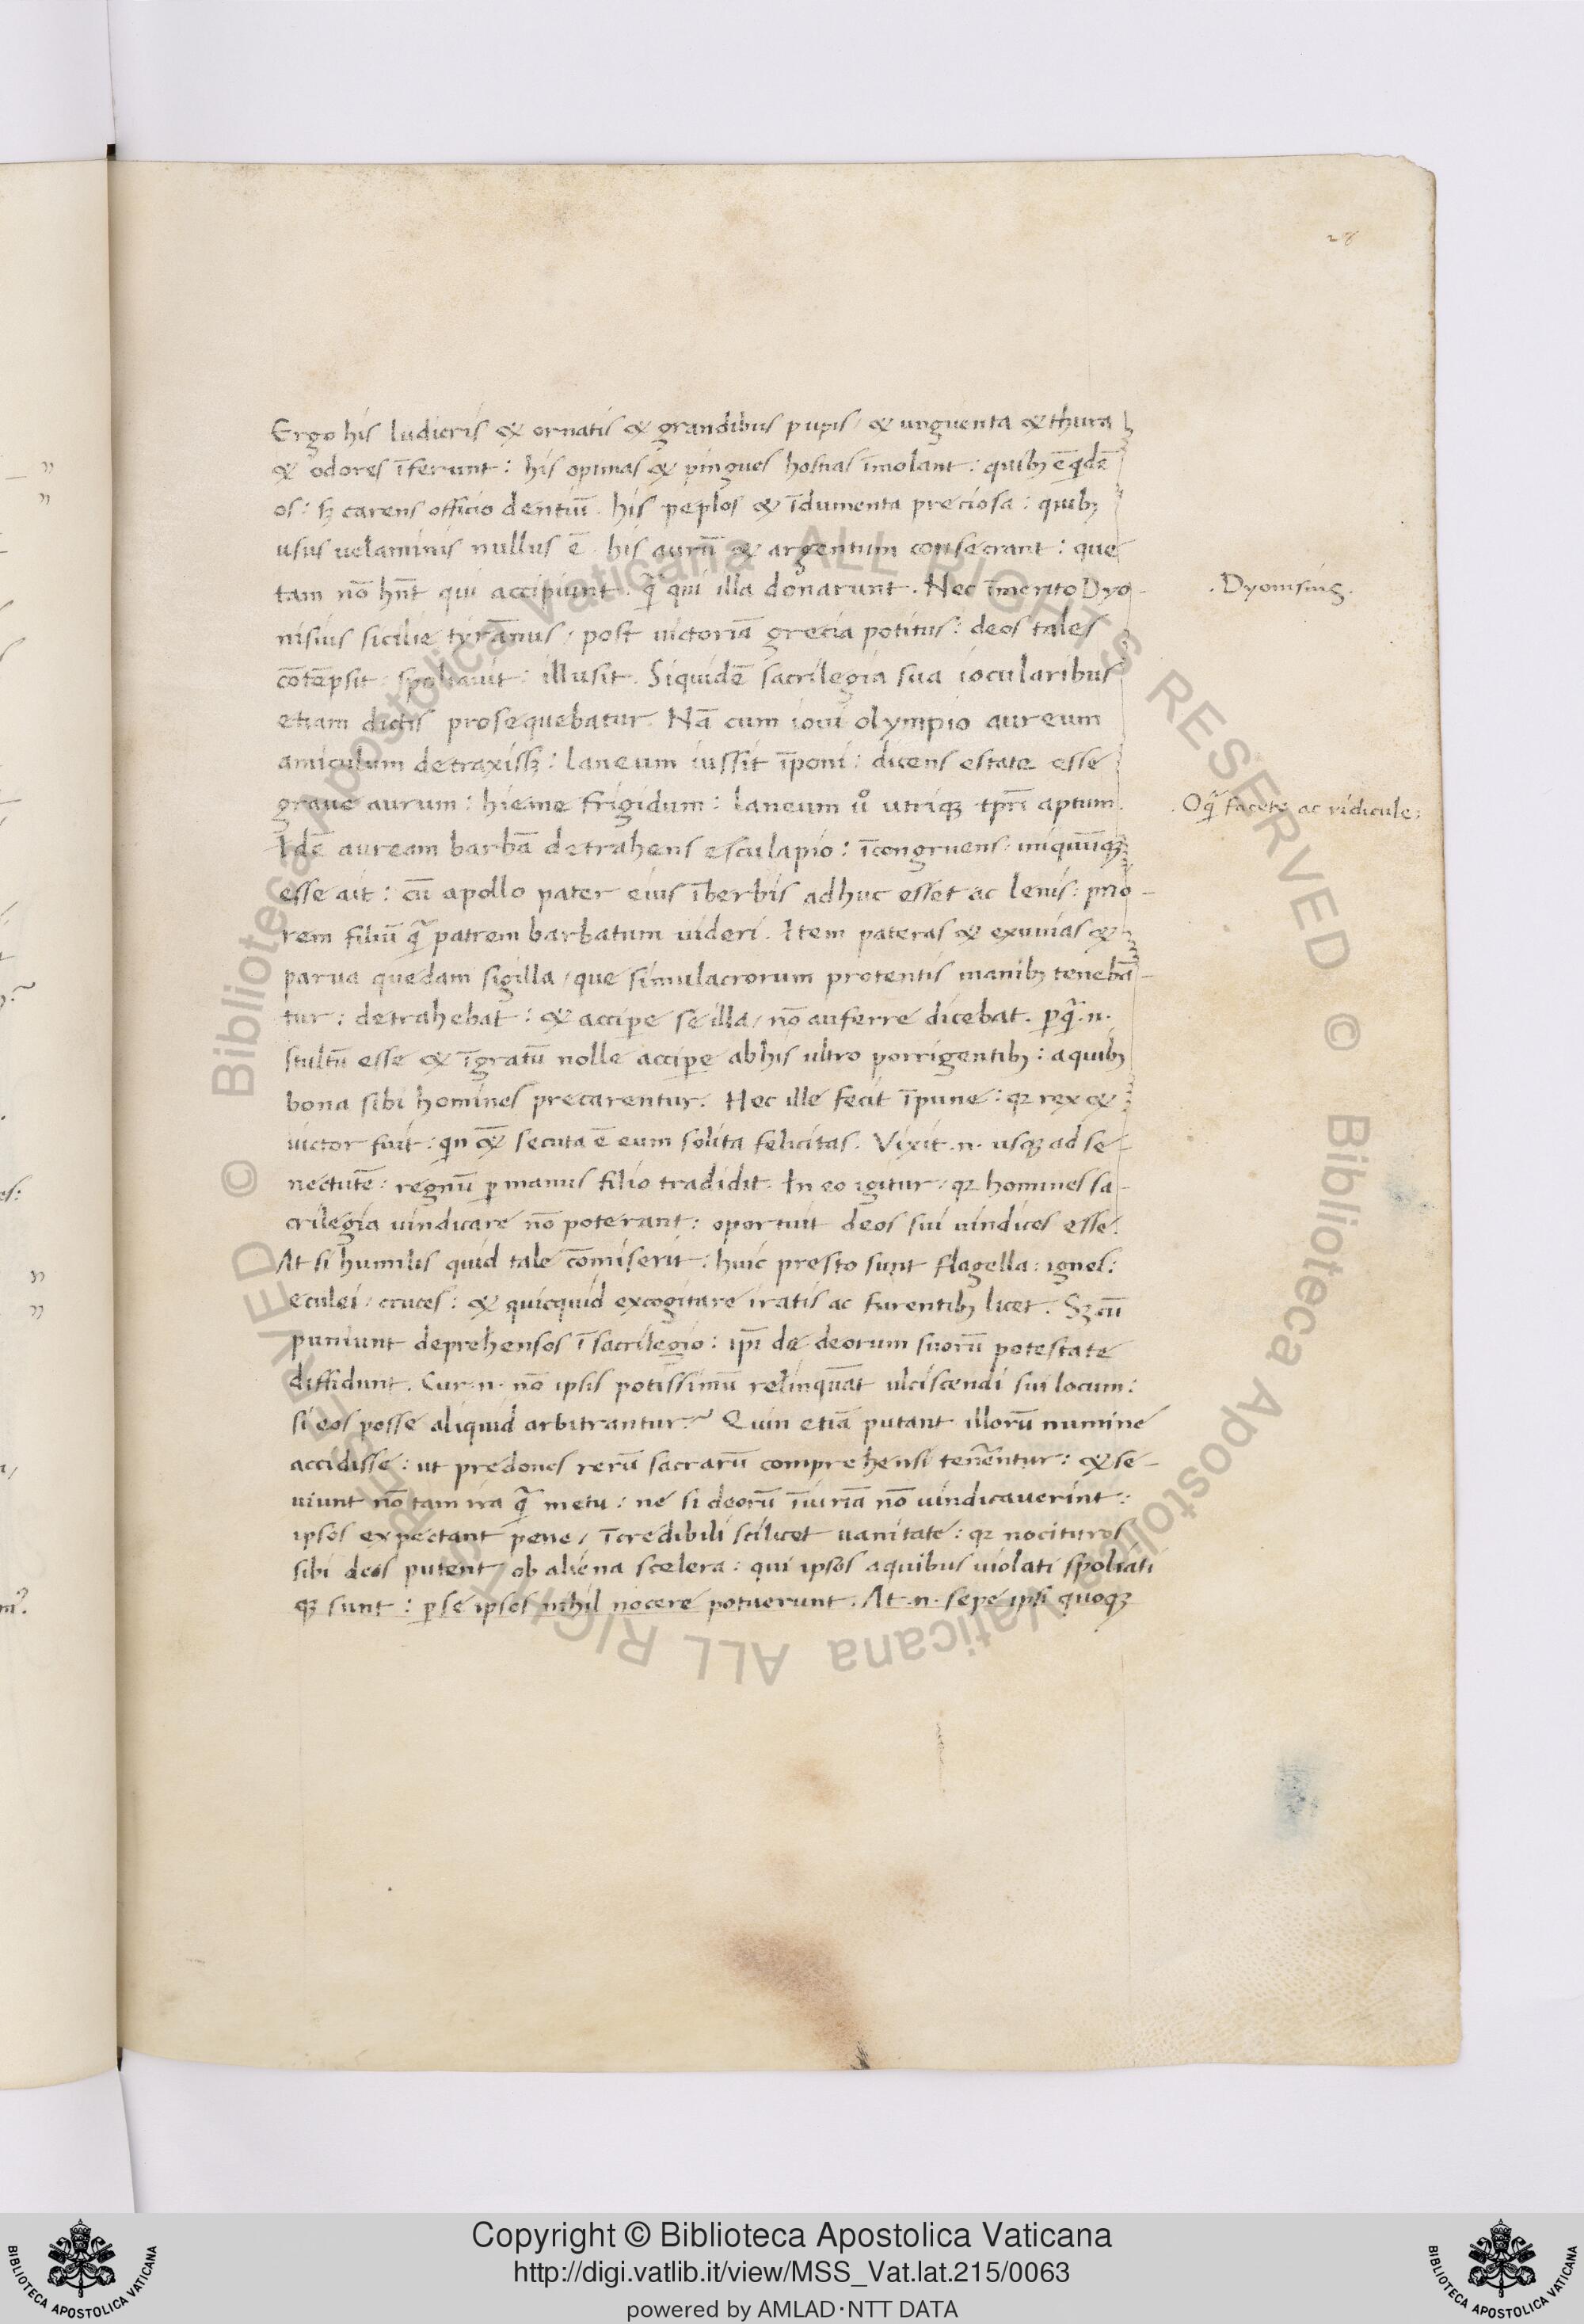 28
Ergo his ludicris & ornatis & grandibus pupis / & unguenta & thura
& odores īferunt : his opimas & pingues hostias īmolant : quibꝫ ē qdē
os : sꝫ carens officio dentiū . his peplos & īdumenta preciosa : quibꝫ
usus uelaminis nullus ē . his aurū & argentum consecrant : que
tam nō hn̄t qui accipiunt . q̄ qui illa donarunt . Nec īmerito Dyo-
. Dyonisiuꝰ .
nisius sicilie tyrānus / post uictoriā grecia potitus : deos tales
cōtēpsit : spoliauit : illusit . Siquidē sacrilegia sua iocularibus
etiam dictis prosequebatur . Nā cum ioui olympio aureum
amiculum detraxissꝫ : laneum iussit īponi : dicens estate esse
graue aurum : hieme frigidum : laneum uͦ utriqꝫ tp̄ri aptum .
. Oq̄ facete ac ridicule :
Idē auream barbā detrahens esculapio : īcongruens : iniquūqꝫ
esse ait : cū apollo pater eius īberbis adhuc esset ac lenis : prio-
rem filiū q̄ patrem barbatum uideri . Item pateras & exuuias &
parua quedam sigilla / que simulacrorum protentis manibꝫ tenebā-
tur : detrahebat : & accipe se illa / nō auferre dicebat . ꝑq̄ .n.
stultū esse & īgratū nolle accipe ab his ultro porrigentibꝫ : aquibꝫ
bona sibi homines precarentur . Hec ille fecit īpune : qꝫ rex &
uictor fuit : qn & secuta ē eum solita felicitas . Vixit .n. usqꝫ ad se-
nectutē : regnū ꝑ manus filio tradidit . In eo igitur : qꝫ homines sa-
crilegia uindicare nō poterant : oportuit deos sui uindices esse .
At si humilis quid tale cōmiserit : huic presto sunt flagella : ignes :
eculei : cruces : & quicquid excogitare iratis ac furentibꝫ licet . Sꝫ cū
puniunt deprehensos ī sacrilegio : ip̄i de deorum suorū potestate
diffidunt . Cur .n. nō ipsis potissimū relinquāt ulciscendi sui locum :
si eos posse aliquid arbitrantur ? Quin etiā putant illorū numine
accidisse : ut predones rerū sacrarū comprehensi tenerentur : & se-
uiunt nō tam ira q̄ metu : ne si deorū īiuriā nō uindicauerint :
ipsos expectant pene / īcredibili scilicet uanitate : qꝫ nocituros
sibi deos putent ob aliena scelera : qui ipsos aquibus uiolati spoliati
qꝫ sunt : ꝑ se ipsos nihil nocere potuerunt . At .n. sepe ipsi quoqꝫ
Copyright © Biblioteca Apostolica Vaticana
http://digi.vatlib.it/view/MSS_Vat.lat.215/0063
powered by AMLAD·NTT DATA